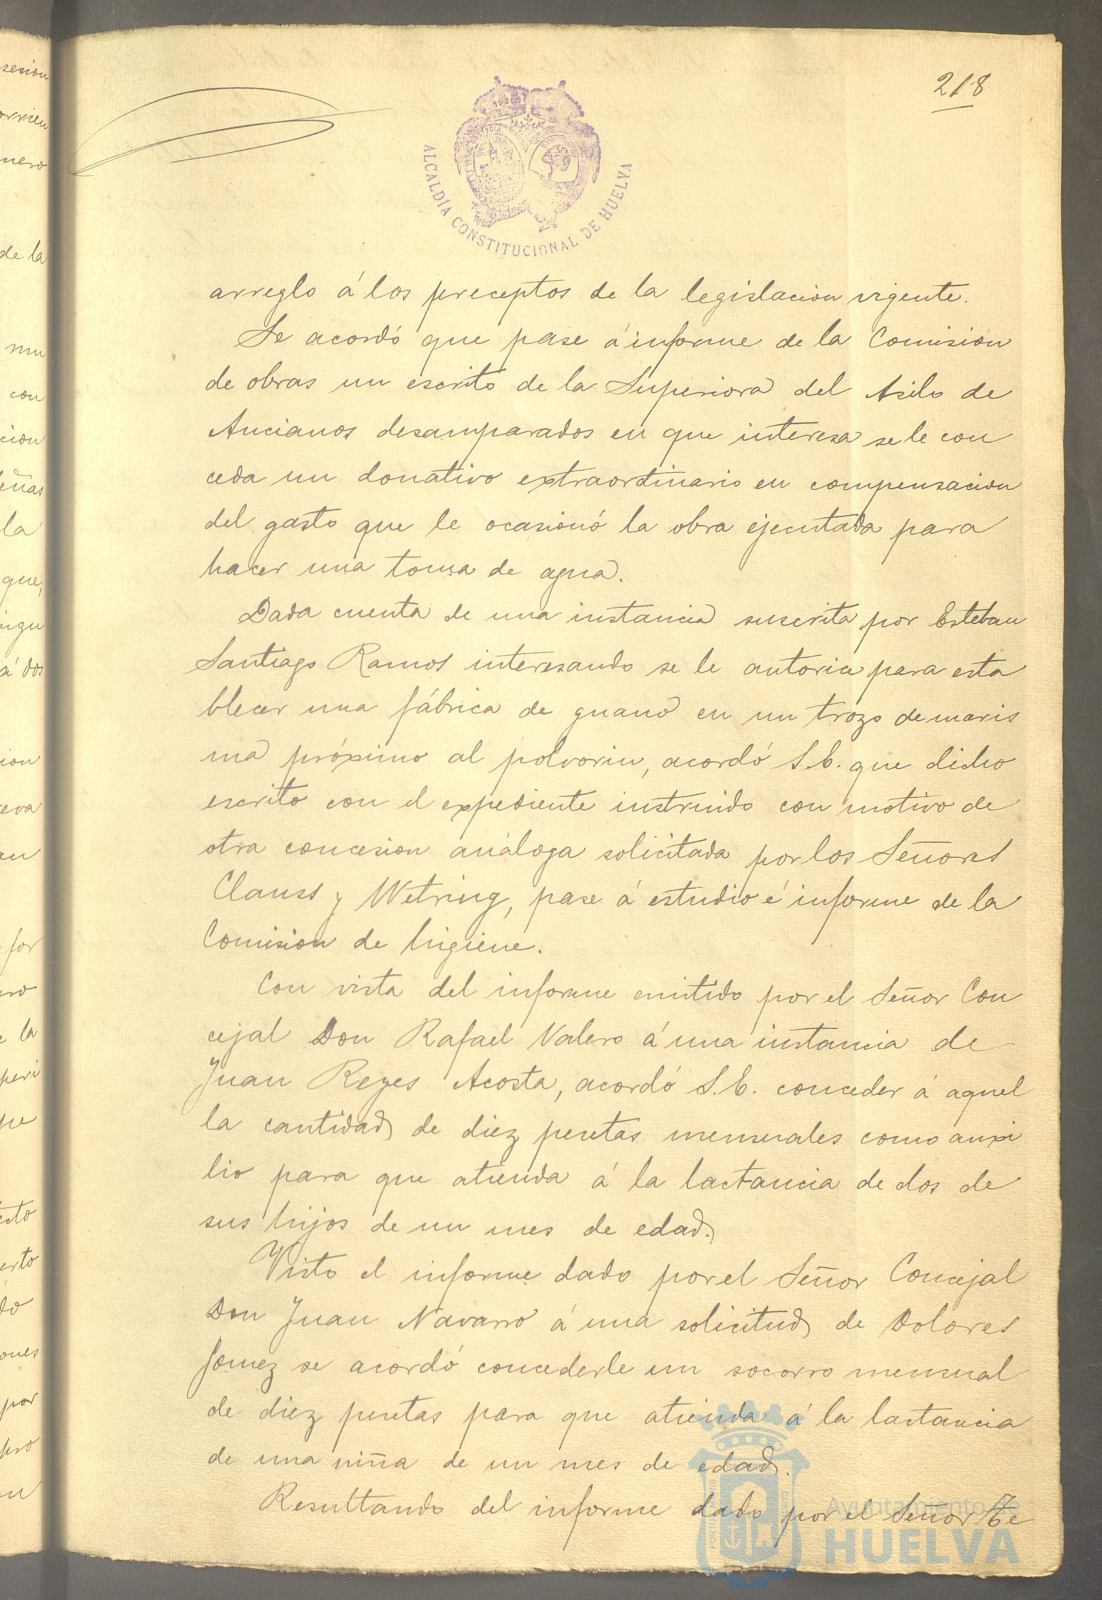 218
ALCALDÍA CONSTITUCIONAL DE HUELVA
arreglo á los preceptos de la legislacion vigente.
Se acordó que pase á informe de la Comision
de obras un escrito de la Superiora del Asilo de
Ancianos desamparados en que interesa se le con
ceda un donativo extraordinario en compensacion
del gasto que le ocasionó la obra ejecutada para
hacer una toma de agua.
Dada cuenta de una instancia suscrita por Esteban
Santiago Ramos interesando se le autorice para esta
blecer una fábrica de guano en un trozo de maris
ma próximo al polvorin, acordó S.E. que dicho
escrito con el expediente instruido con motivo de
otra concesion análoga solicitada por los Señores
Clauss y Wetring, pase á estudio é informe de la
Comision de higiene.
Con vista del informe emitido por el Señor Con
cejal Don Rafael Valero á una instancia de
Juan Reyes Acosta, acordó S.E. conceder á aquel
la cantidad de diez pesetas mensuales como auxi
lio para que atienda á la lactancia de dos de
sus hijos de un mes de edad.
Visto el informe dado por el Señor Concejal
Don Juan Navarro á una solicitud de Dolores
Gomez se acordó concederle un socorro mensual
de diez pesetas para que atienda á la lactancia
de una niña de un mes de edad.
Resultando del informe dado por el Señor Te
Ayuntamiento de
HUELVA